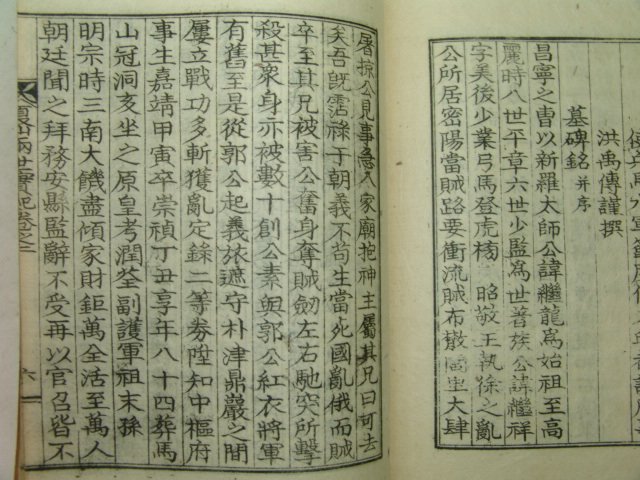 洪禹傳謹撰
墓碑銘 并序
昌寧之曺以新羅太師公諱繼龍為始祖至高
麗時八世平章六世少監為世著族公諱繼祥
字美後少業弓馬登虎榜 昭敬王執徐之亂
公所居密陽當賊路要衝流賊布散閭里大肆
屠掠公見事急入家廟抱神主屬其兄曰可去
矣吾旣霑祿于朝義不苟生當死國亂俄而賊
卒至其兄被害公奮身奪賊劒左右馳突所擊
殺甚衆身亦被數十創公素與郭公紅衣將軍
有舊至是從郭公起義旅遮守朴津鼎巖之間
屢立戰功多斬獲亂定錄二等券陞知中樞府
事生嘉靖甲寅卒崇禎丁丑享年八十四葬馬
山冠洞亥坐之原皇考潤荃副護軍祖末孫
明宗時三南大饑盡傾家財鉅萬全活至萬人
朝廷聞之拜務安縣監辭不受再以官召皆不
兩世實紀卷之 六